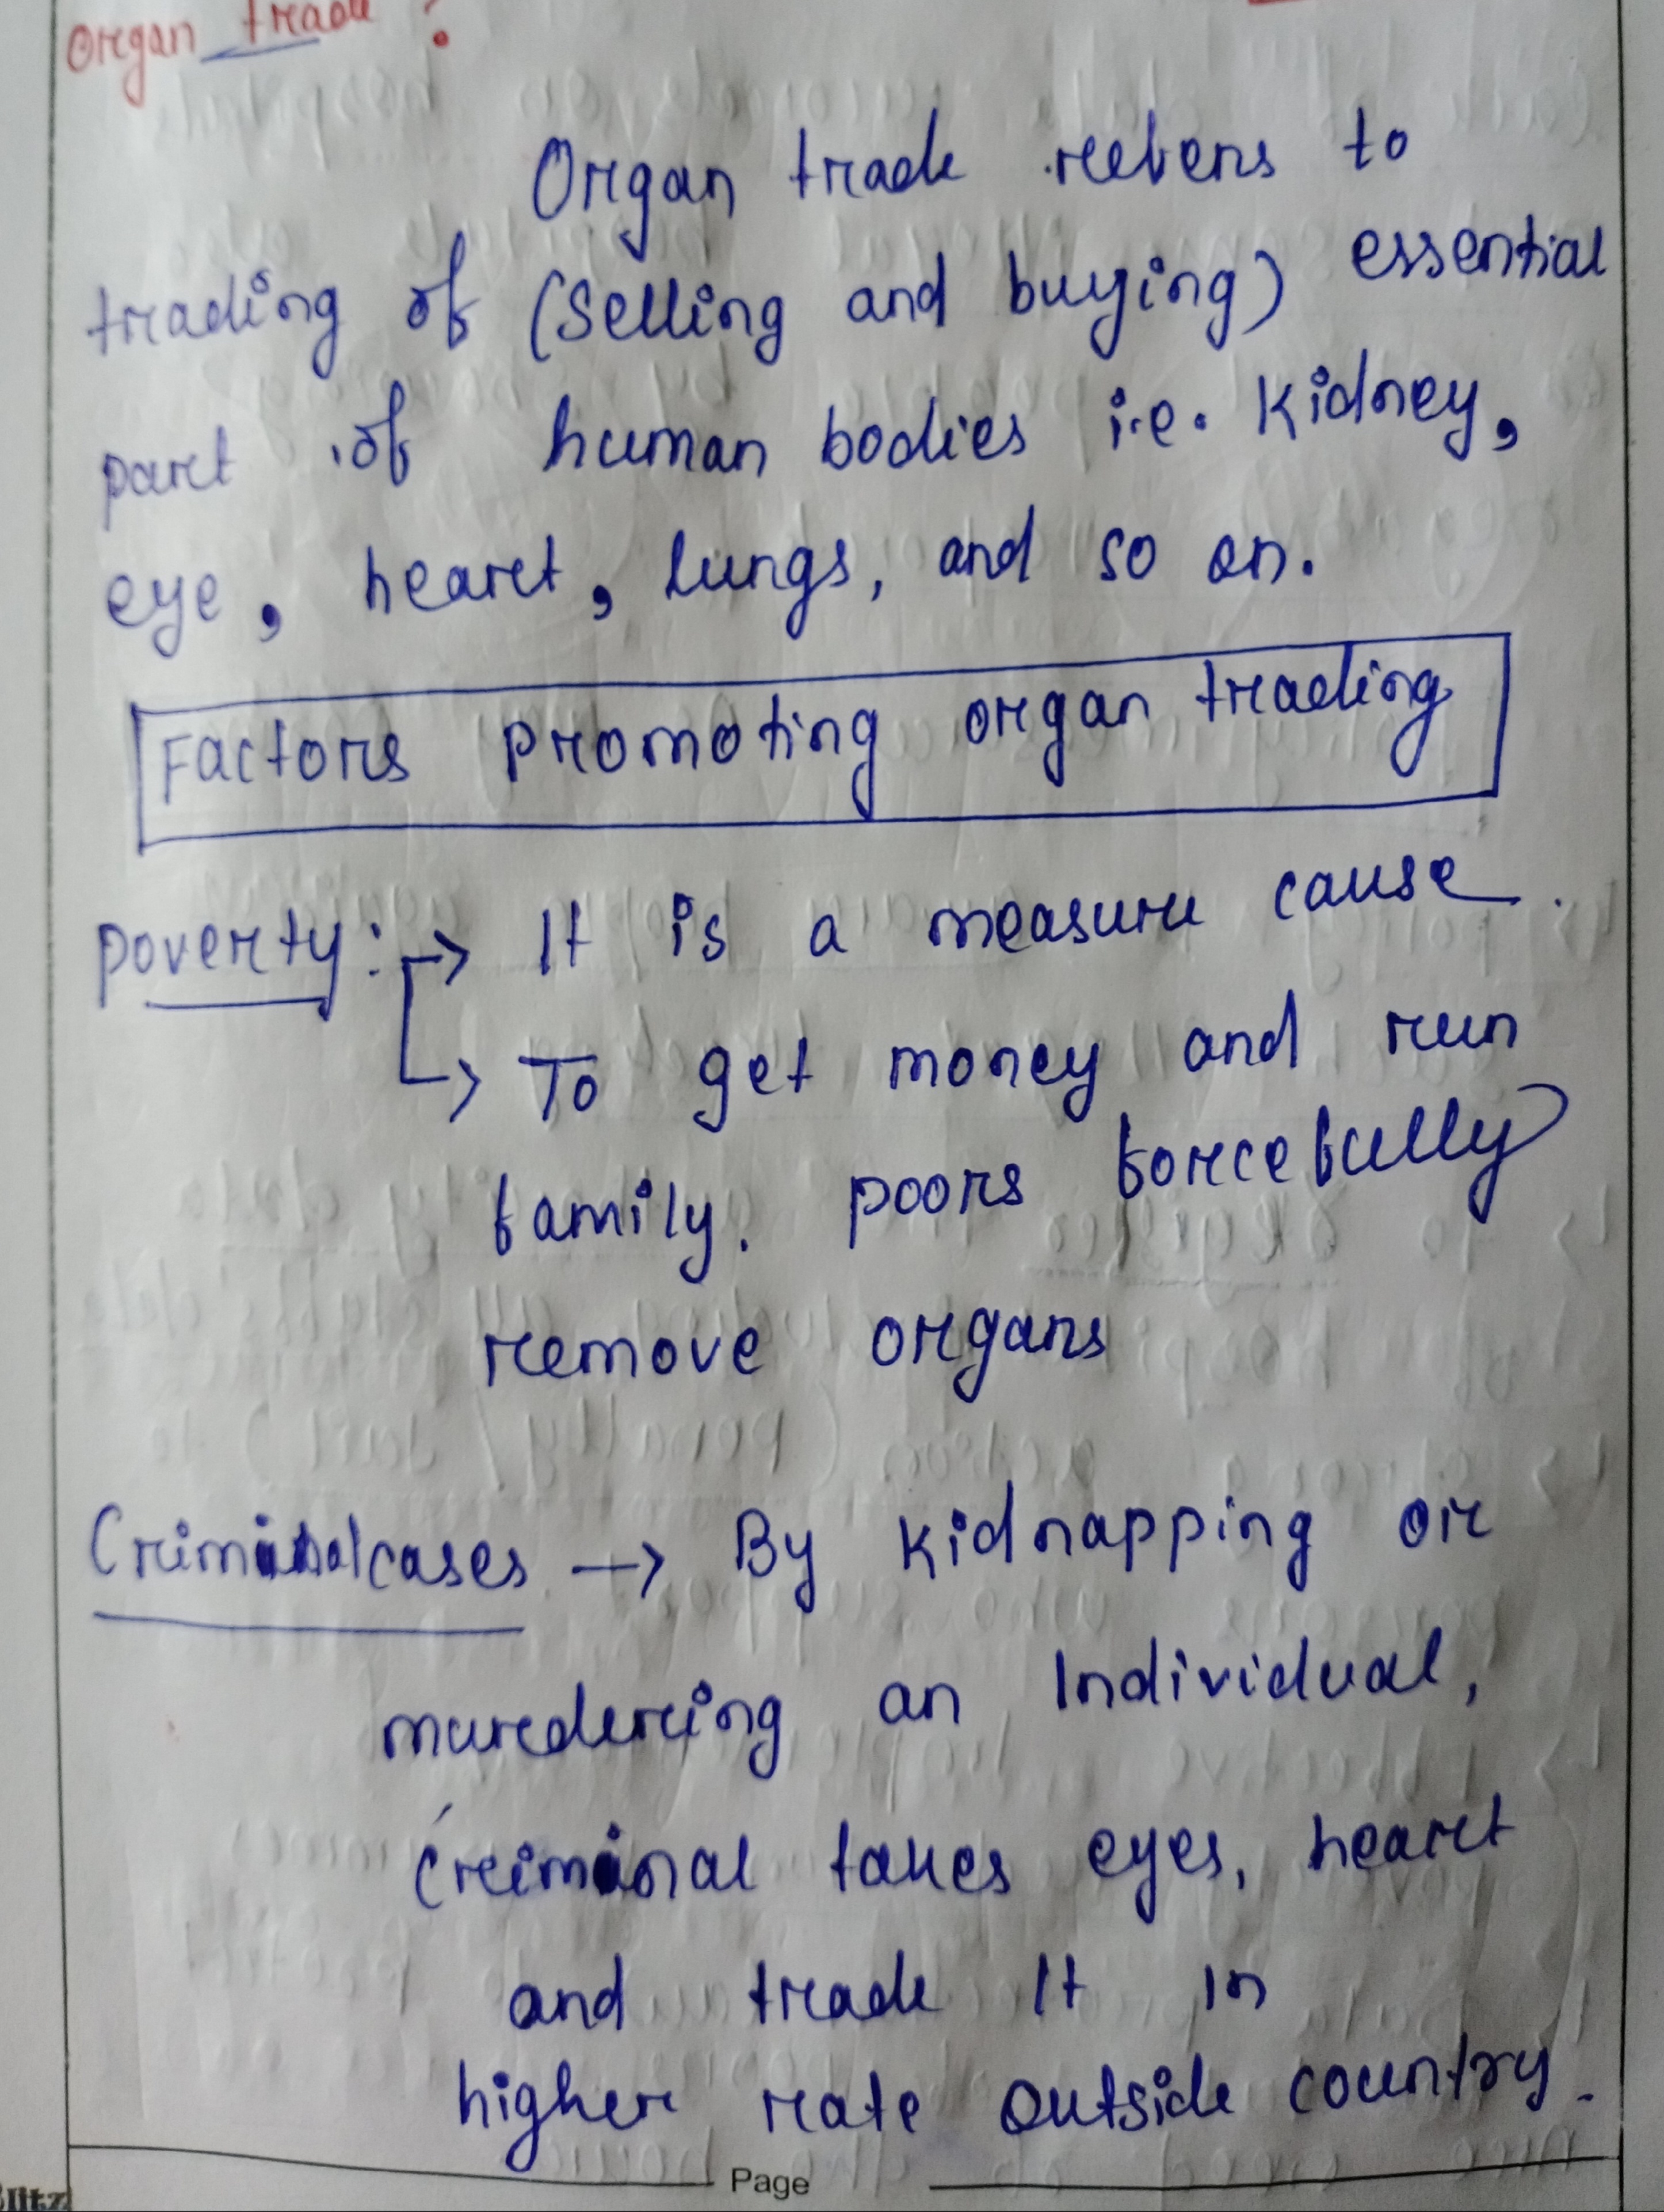 Organ trade ?
Organ trade refers to
trading of (Selling and buying) essential
part of human bodies i.e. Kidney,
eye, heart, lungs, and so on.
Factors Promoting organ trading
poverty: → It is a measure cause.
→ To get money and run
family. poors forcefully
remove organs
Criminal cases → By kidnapping or
murdering an Individual,
Criminal takes eyes, heart
and trade It in
higher rate outside country.
Page